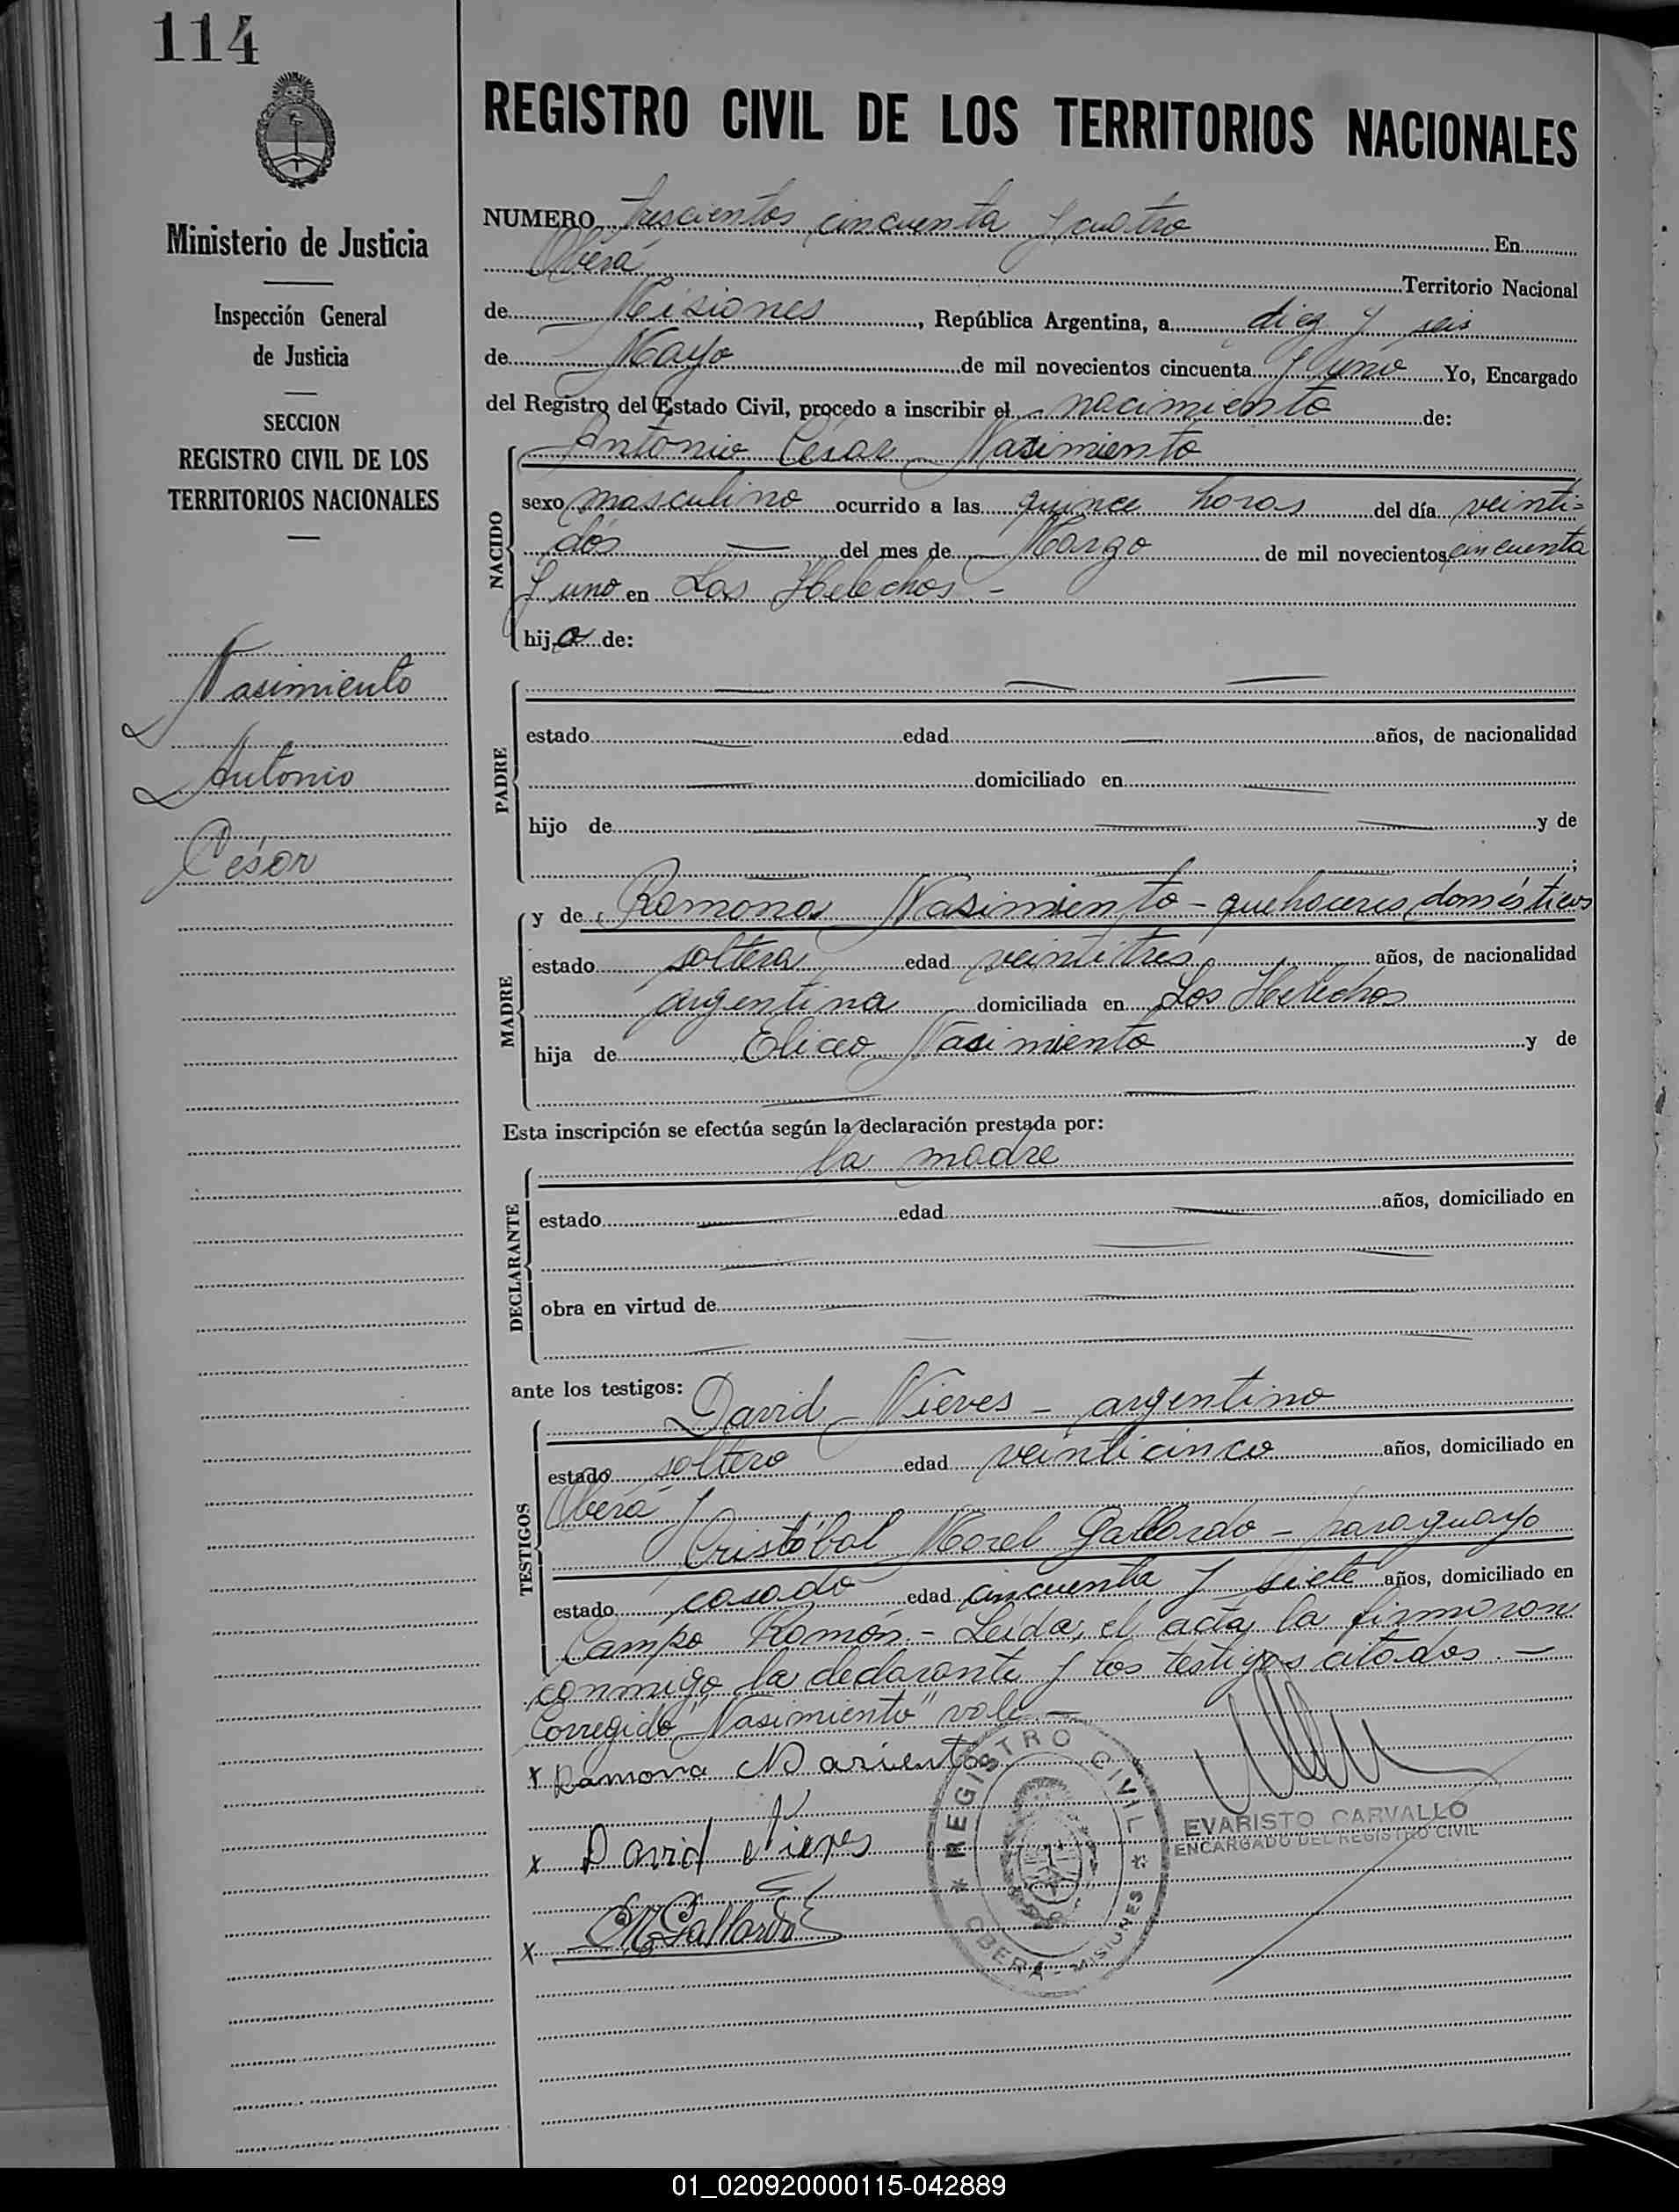 114
REGISTRO CIVIL DE LOS TERRITORIOS NACIONALES
Ministerio de Justicia
Inspección General
de Justicia
SECCION
REGISTRO CIVIL DE LOS
TERRITORIOS NACIONALES
Nasimiento
Antonio
César
NUMERO trescientos cincuenta y cuatro En
Oberá Territorio Nacional
de Misiones, República Argentina, a diez y seis
de Mayo de mil novecientos cincuenta y uno Yo, Encargado
del Registro del Estado Civil, procedo a inscribir el nacimiento de:
NACIDO
Antonio César Nasimiento
sexo masculino ocurrido a las quince horas del día veinti=
dós — del mes de Marzo de mil novecientos cincuenta
y uno en Los Helechos.-
hijo de:
PADRE
estado edad años, de nacionalidad
domiciliado en
hijo de y de
;
MADRE
y de Ramona Nasimiento - quehaceres domésticos
estado soltera edad veintitres años, de nacionalidad
argentina domiciliada en Los Helechos
hija de Eliceo Nasimiento y de
Esta inscripción se efectúa según la declaración prestada por:
DECLARANTE
la madre
estado edad años, domiciliado en
obra en virtud de
ante los testigos:
TESTIGOS
David Nieves - argentino
estado soltero edad veinticinco años, domiciliado en
Oberá y
Cristóbal Morel Gallardo - paraguayo
estado casado edad cincuenta y siete años, domiciliado en
Campo Ramón.- Leída, el acta, la firmaron
conmigo la declarante y los testigos citados.-
Corregido "Nasimiento" vale.-
x Ramona Nasiento
x David Nieves
x CMGallardo
REGISTRO CIVIL
OBERA - MISIONES
EVARISTO CARVALLO
ENCARGADO DEL REGISTRO CIVIL
01_020920000115-042889